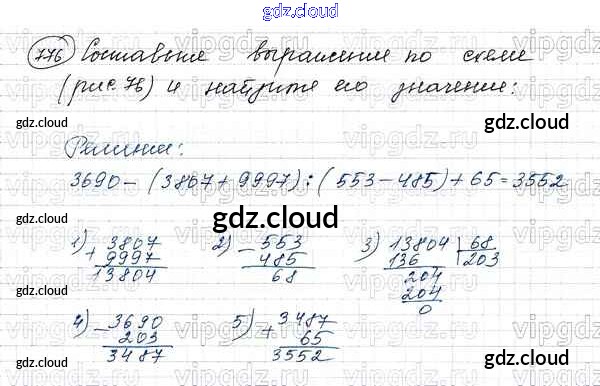 gdz.cloud
776 Составьте выражение по схеме
(рис. 76) и найдите его значение:
gdz.cloud gdz.cloud
Решение:
3690 - (3807 + 9997) : (553 - 485) + 65 = 3552
gdz.cloud
1) 3807 + 9997 13804
2) - 553 485 68
3) 13804 68 136 203 204 204 0
4) - 3690 203 3487
5) + 3487 65 3552
gdz.cloud gdz.cloud